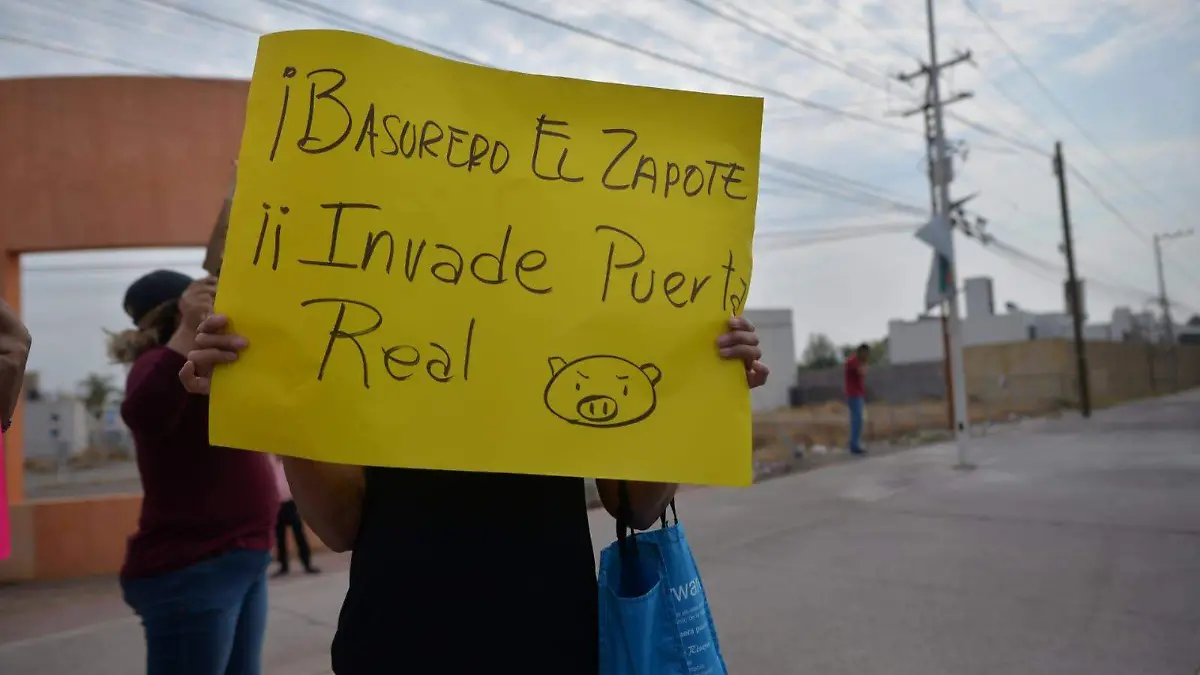 ¡BASURERO EL ZAPOTE
¡¡Invade Puerta
Real